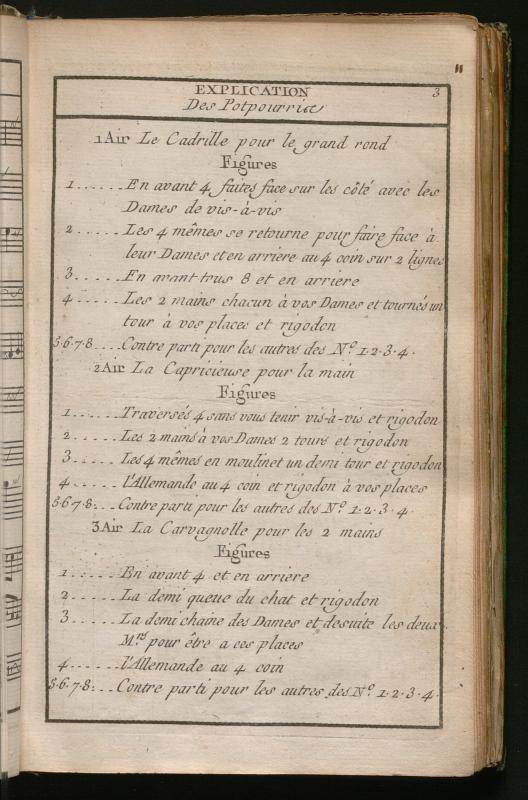 11
EXPLICATION 3
Des Potpourris
1 Air Le Cadrille pour le grand rond
Figures
1......En avant 4, faites face sur les côté avec les
Dames de vis-à-vis
2......Les 4 mêmes se retourne pour faire face à
leur Dames et en arriere au 4 coin sur 2 lignes
3......En avant tous 8 et en arriere
4......Les 2 mains chacun à vos Dames et tournés un
tour à vos places et rigodon
5.6.7.8...Contre parti pour les autres des Nº 1.2.3.4.
2 Air La Capricieuse pour la main
Figures
1......Traversés 4 sans vous tenir vis-à-vis et rigodon
2......Les 2 mains à vos Dames 2 tours et rigodon
3......Les 4 mêmes en moulinet un demi tour et rigodon
4......l'Allemande au 4 coin et rigodon à vos places
5.6.7.8...Contre parti pour les autres des Nº 1.2.3.4.
3 Air La Carvagnolle pour les 2 mains
Figures
1......En avant 4 et en arriere
2......La demi queue du chat et rigodon
3......La demi chaine des Dames et desuite les deux
M.rs pour être a ces places
4......l'Allemande au 4 coin
5.6.7.8...Contre parti pour les autres des Nº 1.2.3.4.